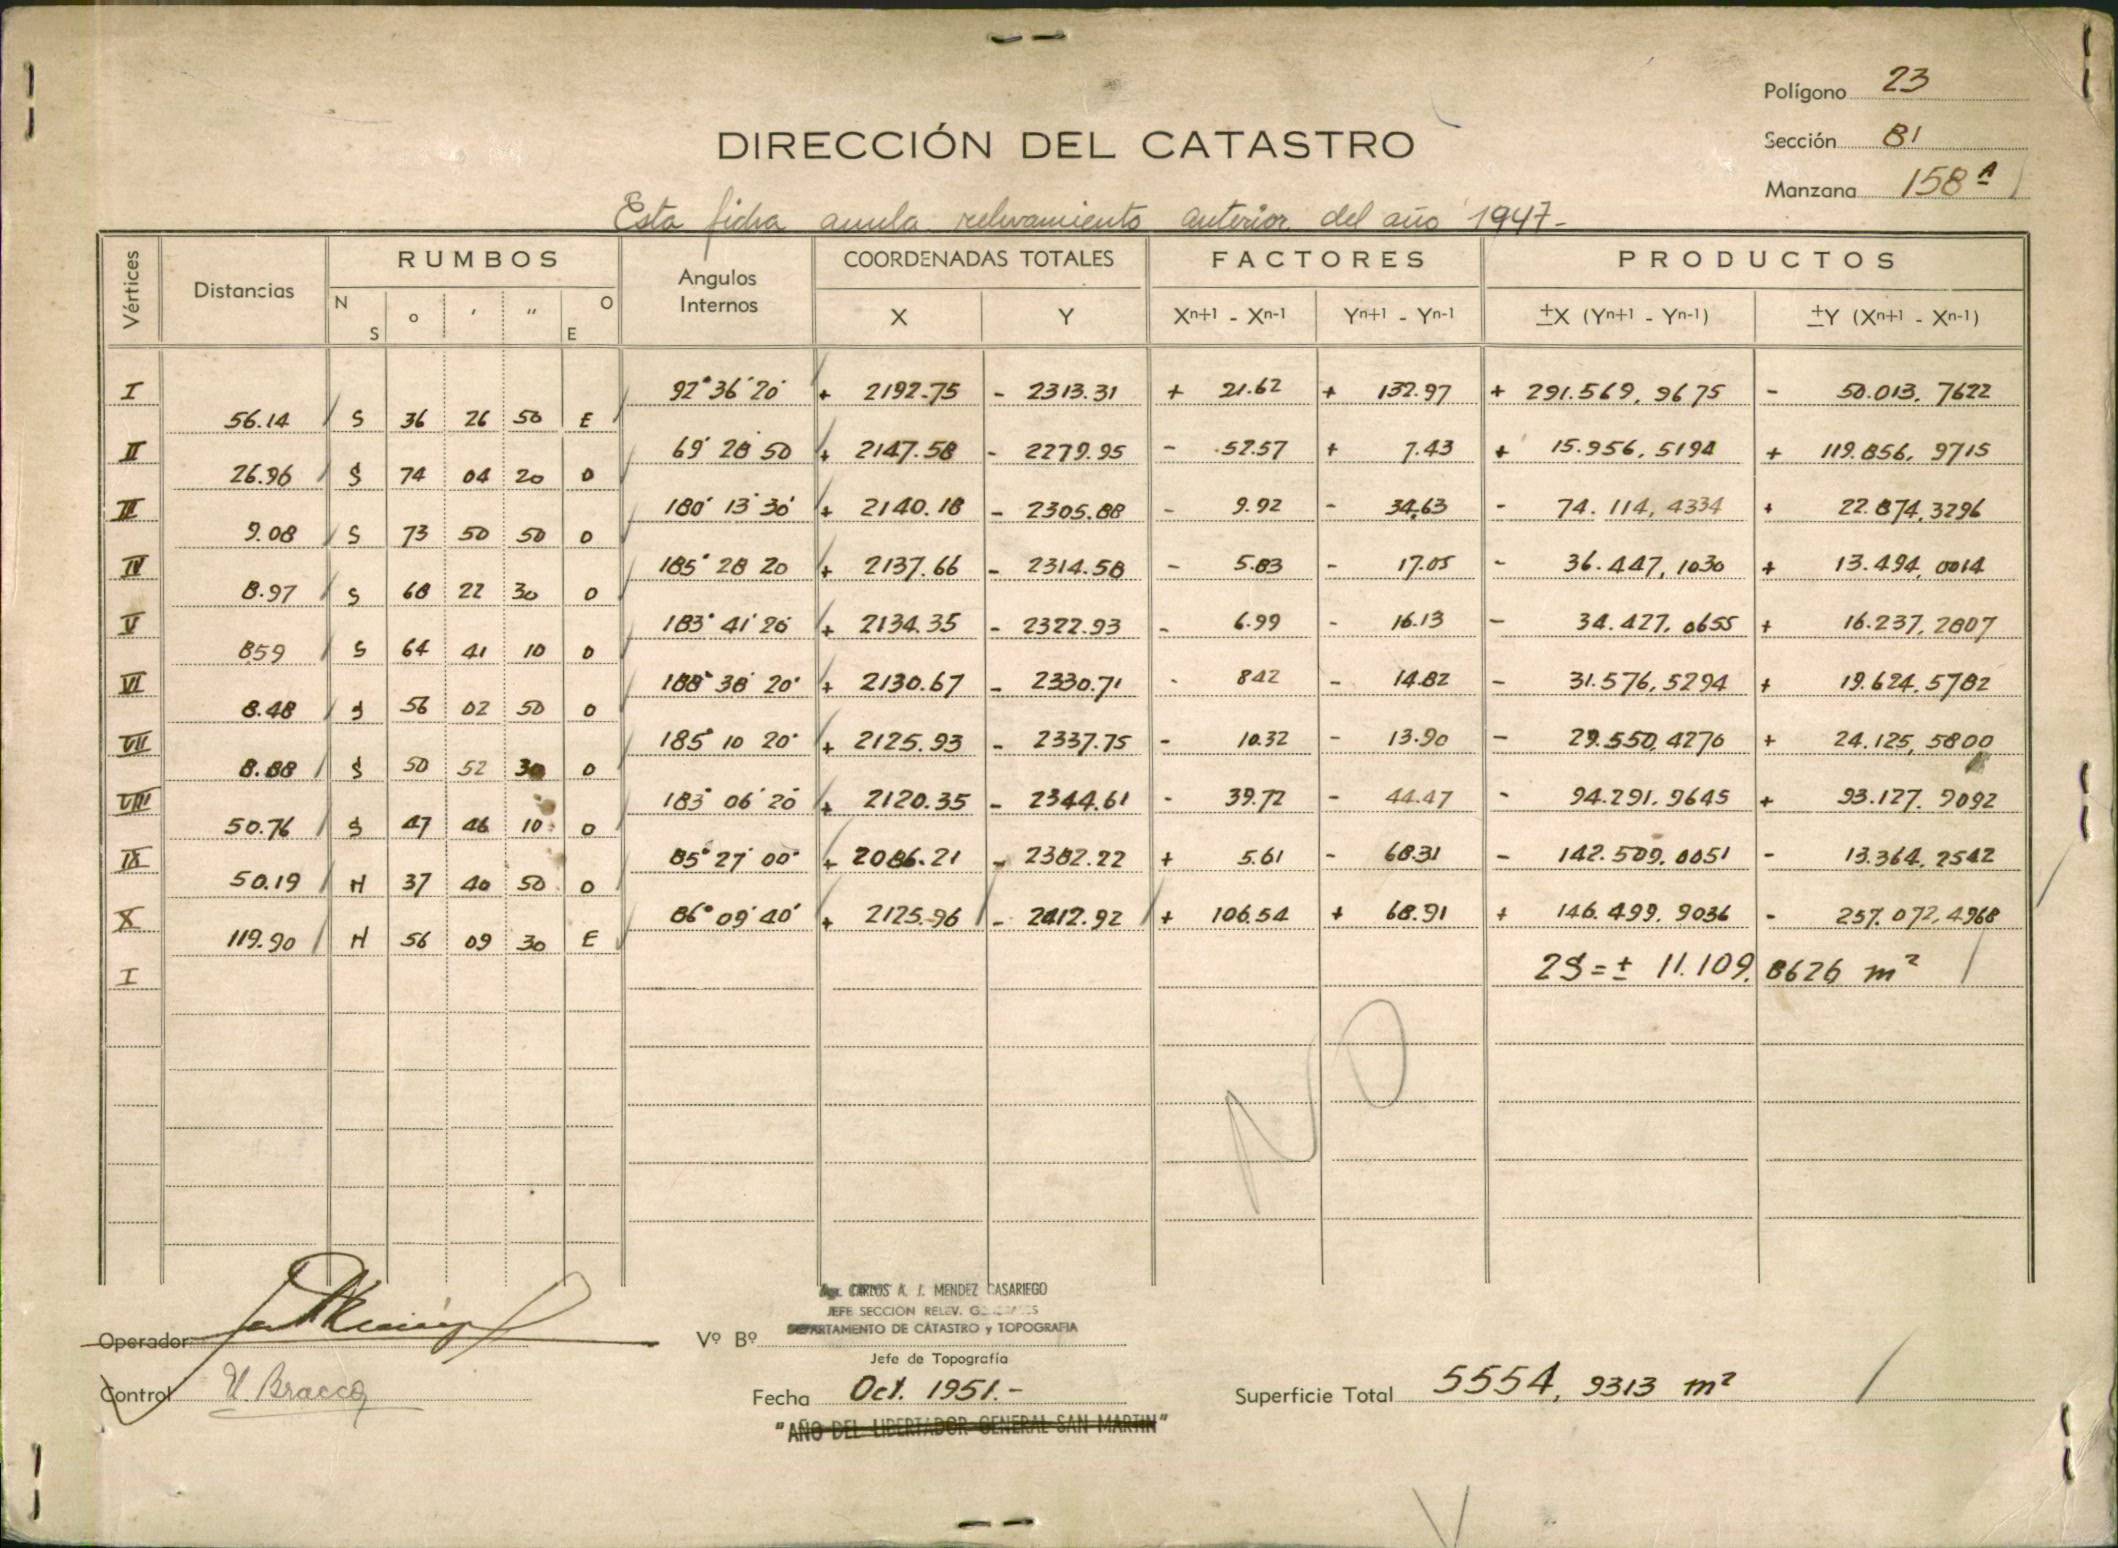 Polígono 23
DIRECCIÓN DEL CATASTRO
Sección 81
Manzana 158 A
Esta ficha anula relevamiento anterior del año 1947-
Vértices Distancias RUMBOS Angulos Internos COORDENADAS TOTALES FACTORES PRODUCTOS
N S ° ' " O E X Y Xn+1 - Xn-1 Yn+1 - Yn-1 ±X (Yn+1 - Yn-1) ±Y (Xn+1 - Xn-1)
I 92° 36' 20" + 2192.75 - 2313.31 + 21.62 + 132.97 + 291.569,9675 - 50.013,7622
56.14 S 36 26 50 E
II 69° 28' 50 + 2147.58 - 2279.95 - 52.57 + 7.43 + 15.956,5194 + 119.856,9715
26.96 S 74 04 20 O
III 180° 13' 30" + 2140.18 - 2305.88 - 9.92 - 34.63 - 74.114,4334 + 22.874,3296
9.08 S 73 50 50 O
IV 185° 28 20 + 2137.66 - 2314.58 - 5.83 - 17.05 - 36.447,1030 + 13.494,0014
8.97 S 68 22 30 O
V 183° 41' 20" + 2134.35 - 2322.93 - 6.99 - 16.13 - 34.427,0655 + 16.237,2807
859 S 64 41 10 O
VI 188° 38' 20" + 2130.67 - 2330.71 - 842 - 14.82 - 31.576,5294 + 19.624,5782
8.48 S 56 02 50 O
VII 185° 10 20" + 2125.93 - 2337.75 - 10.32 - 13.90 - 29.550,4270 + 24.125,5800
8.88 S 50 52 30 O
VIII 183° 06' 20" + 2120.35 - 2344.61 - 39.72 - 44.47 - 94.291,9645 + 93.127,9092
50.76 S 47 46 10 O
IX 85° 27' 00" + 2086.21 - 2382.22 + 5.61 - 68.31 - 142.509,0051 - 13.364,2542
50.19 N 37 40 50 O
X 86° 09' 40" + 2125.96 - 2412.92 + 106.54 + 68.91 + 146.499,9036 - 257.072,4968
119.90 N 56 09 30 E
I 2S = ± 11.109,8626 m²
NO
CARLOS A. J. MENDEZ CASARIEGO
JEFE SECCION RELEV. GENERALES
DEPARTAMENTO DE CATASTRO y TOPOGRAFIA
Operador
Vº Bº
Jefe de Topografía
Control U. Bracco
Fecha Oct. 1951.-
Superficie Total 5554,9313 m²
"AÑO DEL LIBERTADOR GENERAL SAN MARTIN"